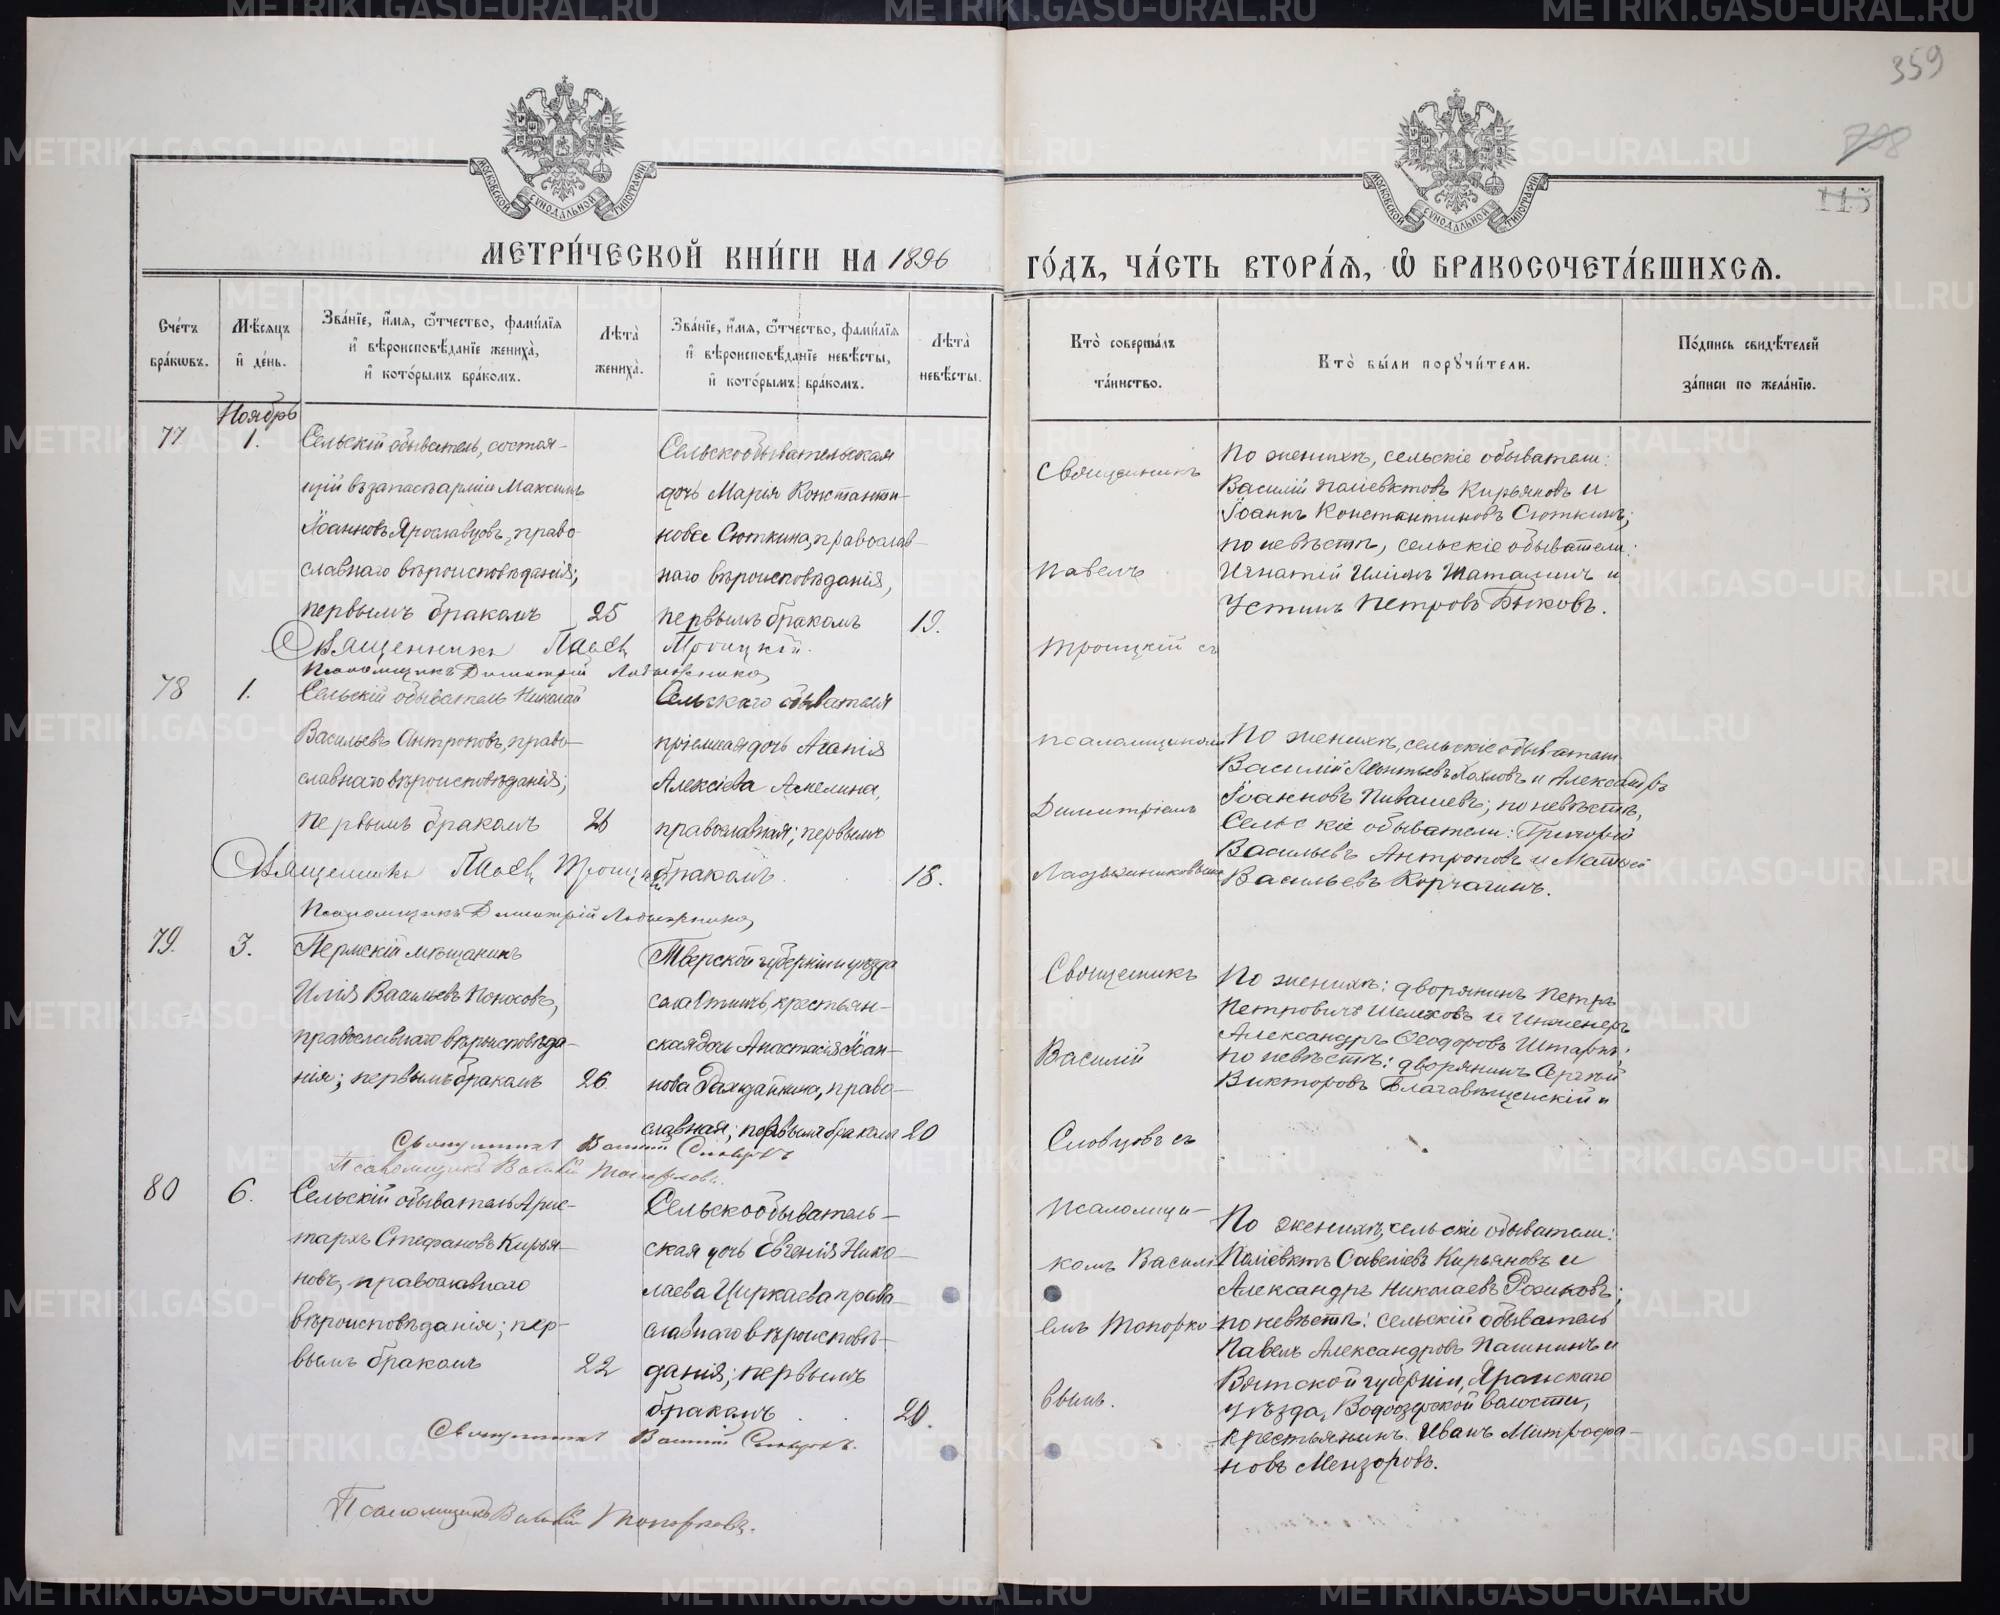 359
798
115
МОСКОВСКОЙ СУНОДАЛЬНОЙ ТИПОГРАФІИ
МОСКОВСКОЙ СУНОДАЛЬНОЙ ТИПОГРАФІИ
МЕТРИ́ЧЕСКОЙ КНИ́ГИ НА 1896
ГО́ДЪ, ЧА́СТЬ ВТОРА́Я, Ѡ БРАКОСОЧЕТА́ВШИХСЯ.
Сче́тъ бра́кѡвъ.
Мѣ́сѧцъ и҆ де́нь.
Зва́нїе, и҆́мѧ, ѻ҆́тчество, фами́лїѧ
и҆ вѣроисповѣ́данїе жениха̀,
и҆ кото́рымъ бра́комъ.
Лѣта̀ жениха̀.
Зва́нїе, и҆́мѧ, ѻ҆́тчество, фами́лїѧ
и҆ вѣроисповѣ́данїе невѣ́сты,
и҆ кото́рымъ бра́комъ.
Лѣта̀ невѣ́сты.
Кто̀ соверша́лъ
та́инство.
Кто̀ бы́ли порꙋчи́тели.
По́дпись свидѣ́телей
за́писи по жела́нїю.
Ноябрь
77
1.
Сельскій обыватель, состоя-
щій въ запасѣ арміи Максимъ
Іоанновъ Ярославцовъ, право-
славнаго вѣроисповѣданія;
первымъ бракомъ
25
Сельскообывательская
дочь Марія Константи-
нова Сюткина, православ-
наго вѣроисповѣданія,
первымъ бракомъ
19.
Священникъ
Павелъ
Троицкій съ
псаломщикомъ
Димитріемъ
По женихѣ, сельскіе обыватели:
Василій Поліевктовъ Кирьяновъ и
Іоаннъ Константиновъ Сюткинъ;
по невѣстѣ, сельскіе обыватели:
Игнатій Иліинъ и
Устинъ Петровъ Быковъ.
Священникъ Павелъ Троицкій.
Псаломщикъ Димитрій
78
1.
Сельскій обыватель Николай
Васильевъ Антроповъ, право-
славнаго вѣроисповѣданія;
первымъ бракомъ
26
Сельскаго обывателя
пріемная дочь Агапія
Алексіева Амелина,
православная; первымъ
бракомъ
18.
По женихѣ, сельскіе обыватели
Василій Леонтьевъ Хохловъ и Александръ
Іоанновъ Пивашевъ; по невѣстѣ,
Сельскіе обыватели: Григорій
Васильевъ Антроповъ и Матвѣй
Васильевъ Корчагинъ.
Священникъ Павелъ Троицкій
Псаломщикъ Димитрій
79.
3.
Пермскій мѣщанинъ
Илія Васильевъ Поносовъ,
православнаго вѣроисповѣда-
нія; первымъ бракомъ
26
Тверской губерніи и уѣзда
села крестьян-
ская дочь Анастасія Іоан-
нова право-
славная; первымъ бракомъ
20
Священникъ
Василій
Словцовъ съ
псаломщи-
комъ Василі-
емъ Топорко-
вымъ.
По женихѣ: дворянинъ Петръ
Петровичъ Шелеховъ и Инженеръ
Александръ Ѳеодоровъ Штаркъ;
по невѣстѣ: дворянинъ Сергѣй
Викторовъ Благовѣщенскій и
Священникъ Василій Словцовъ
Псаломщикъ Василій Топорковъ.
80
6.
Сельскій обыватель Арис-
тархъ Стефановъ Кирья-
новъ, православнаго
вѣроисповѣданія; пер-
вымъ бракомъ
22
Сельскообыватель-
ская дочь Евгенія Нико-
лаева Циркаева право-
славнаго вѣроисповѣ-
данія; первымъ
бракомъ
20.
По женихѣ, сельскіе обыватели:
Поліевктъ Савеліевъ Кирьяновъ и
Александръ Николаевъ Розиковъ;
по невѣстѣ: сельскій обыватель
Павелъ Александровъ Пашнинъ и
Вятской губерніи, Яранскаго
уѣзда, Водоозерской волости,
крестьянинъ Иванъ Митрофа-
новъ Мензоровъ.
Священникъ Василій Словцовъ.
Псаломщикъ Василій Топорковъ.
METRIKI.GASO-URAL.RU